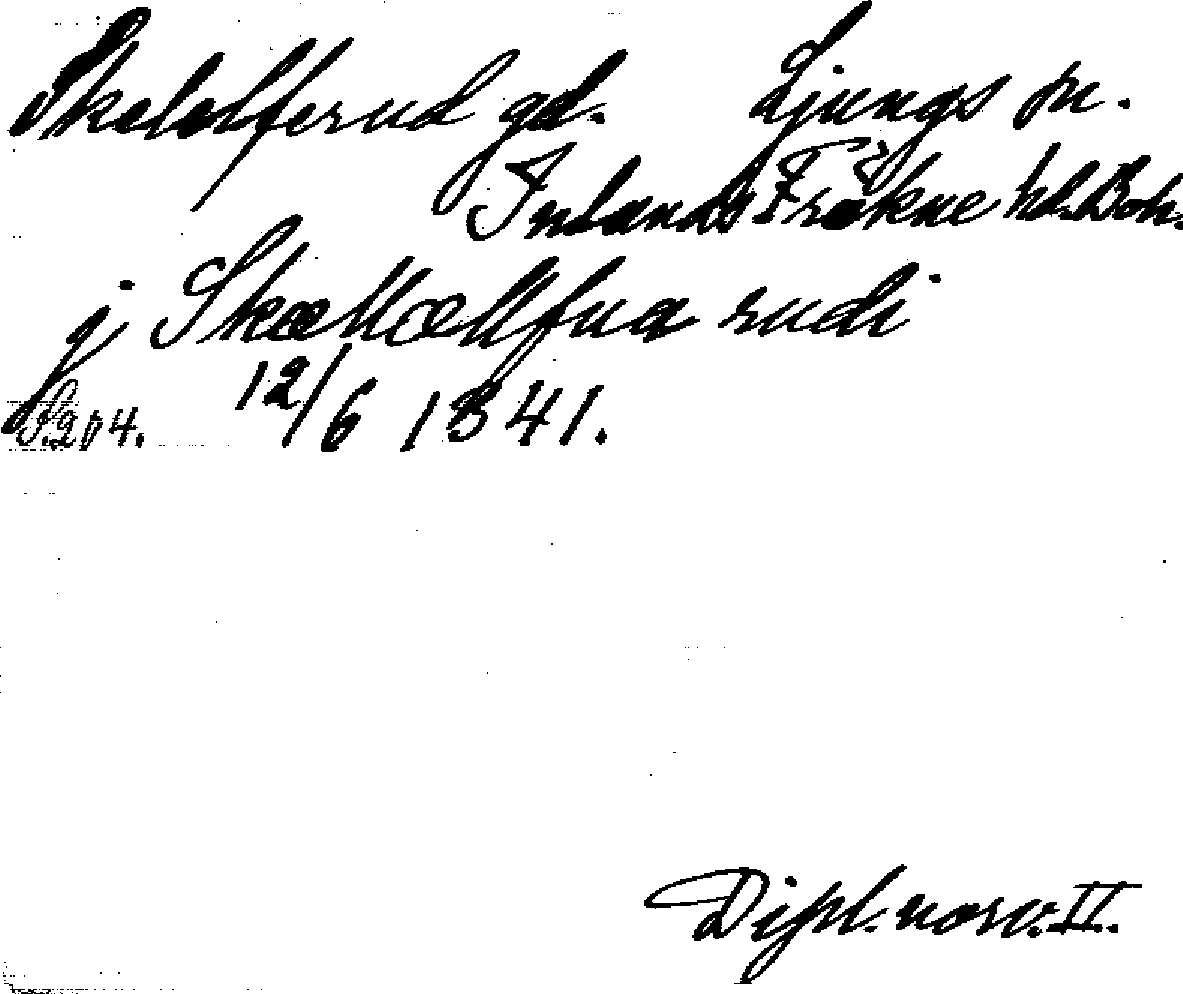 Skelelferud gd. Ljungs sn.
Inlands Fräkne hd. Boh.
j Skællællfua rudi
S. 204. 12/6 1341.
Dipl. norv. II.